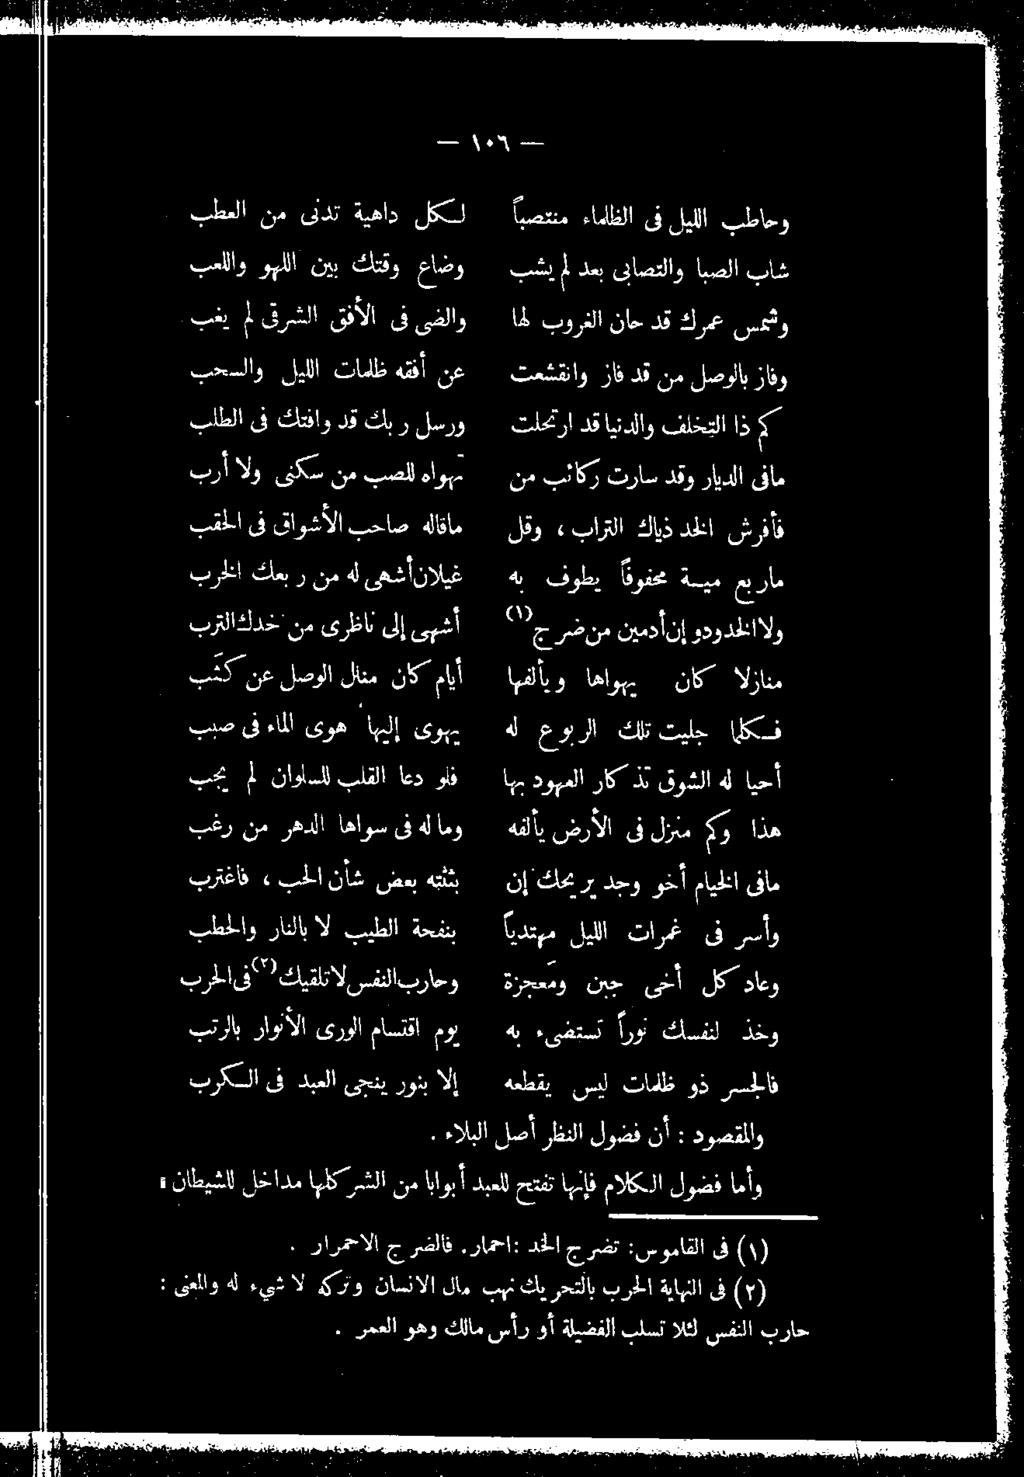 — ١٠٦ —
وحاطب الليل فى الظلماء منتصباً لكل داهية تدنى من العطب
شاب الصبا والتصابى بعد لم يشب وضاع وقتك بين اللهو واللعب
وشمس عمرك قد حان الغروب لها والضى فى الأفق الشرقى لم يغب
وفاز بالوصل من قد فاز وانقشعت عن أفقه ظلمات الليل والسحب
كم ذا التخلف والدنيا قد ارتحلت ورسل ربك قد وافتك فى الطلب
مافى الديار وقد سارت ركائب من تهواه للصب من سكنى ولا أرب
فأفرش الخد ذياك التراب ، وقل ماقاله صاحب الأشواق فى الحقب
ماربع مية محفوفاً يطوف به غيلان أشهى له من ربعك الخرب
ولا الخدود وإن أدمين من ضرج (١) أشهى إلى ناظرى من خدك الترب
منازلا كان يهواها ويألفها أيام كان منال الوصل عن كثَب
فكلما جليت تلك الربوع له يهوى إليها هوى الماء فى صبب
أحيا له الشوق تذكار العهود بها فلو دعا القلب للسلوان لم يجب
هذا وكم منزل فى الأرض يألفه وما له فى سواها الدهر من رغب
مافى الخيام أخو وجد يريحك إن بثثته بعض شأن الحب ، فاغترب
وأسر فى غمرات الليل مهتدياً بنفحة الطيب لا بالنار والحطب
وعاد كل أخى جبن ومَعجزة وحارب النفس لا تلقيك (٢) فى الحرب
وخذ لنفسك نوراً تستضىء به يوم اقتسام الورى الأنوار بالرتب
فالجسر ذو ظلمات ليس يقطعه إلا بنور ينجى العبد فى الكرب
والمقصود : أن فضول النظر أصل البلاء .
وأما فضول الكلام فإنها تفتح للعبد أبوابا من الشر كلها مداخل للشيطان
(١) فى القاموس: تضرج الخد : احمار. فالضرج الاحمرار .
(٢) فى النهاية الحرب بالتحريك نهب مال الانسان وتركه لا شيء له والمعنى :
حارب النفس لئلا تسلب الفضيلة أو رأس مالك وهو العمر .